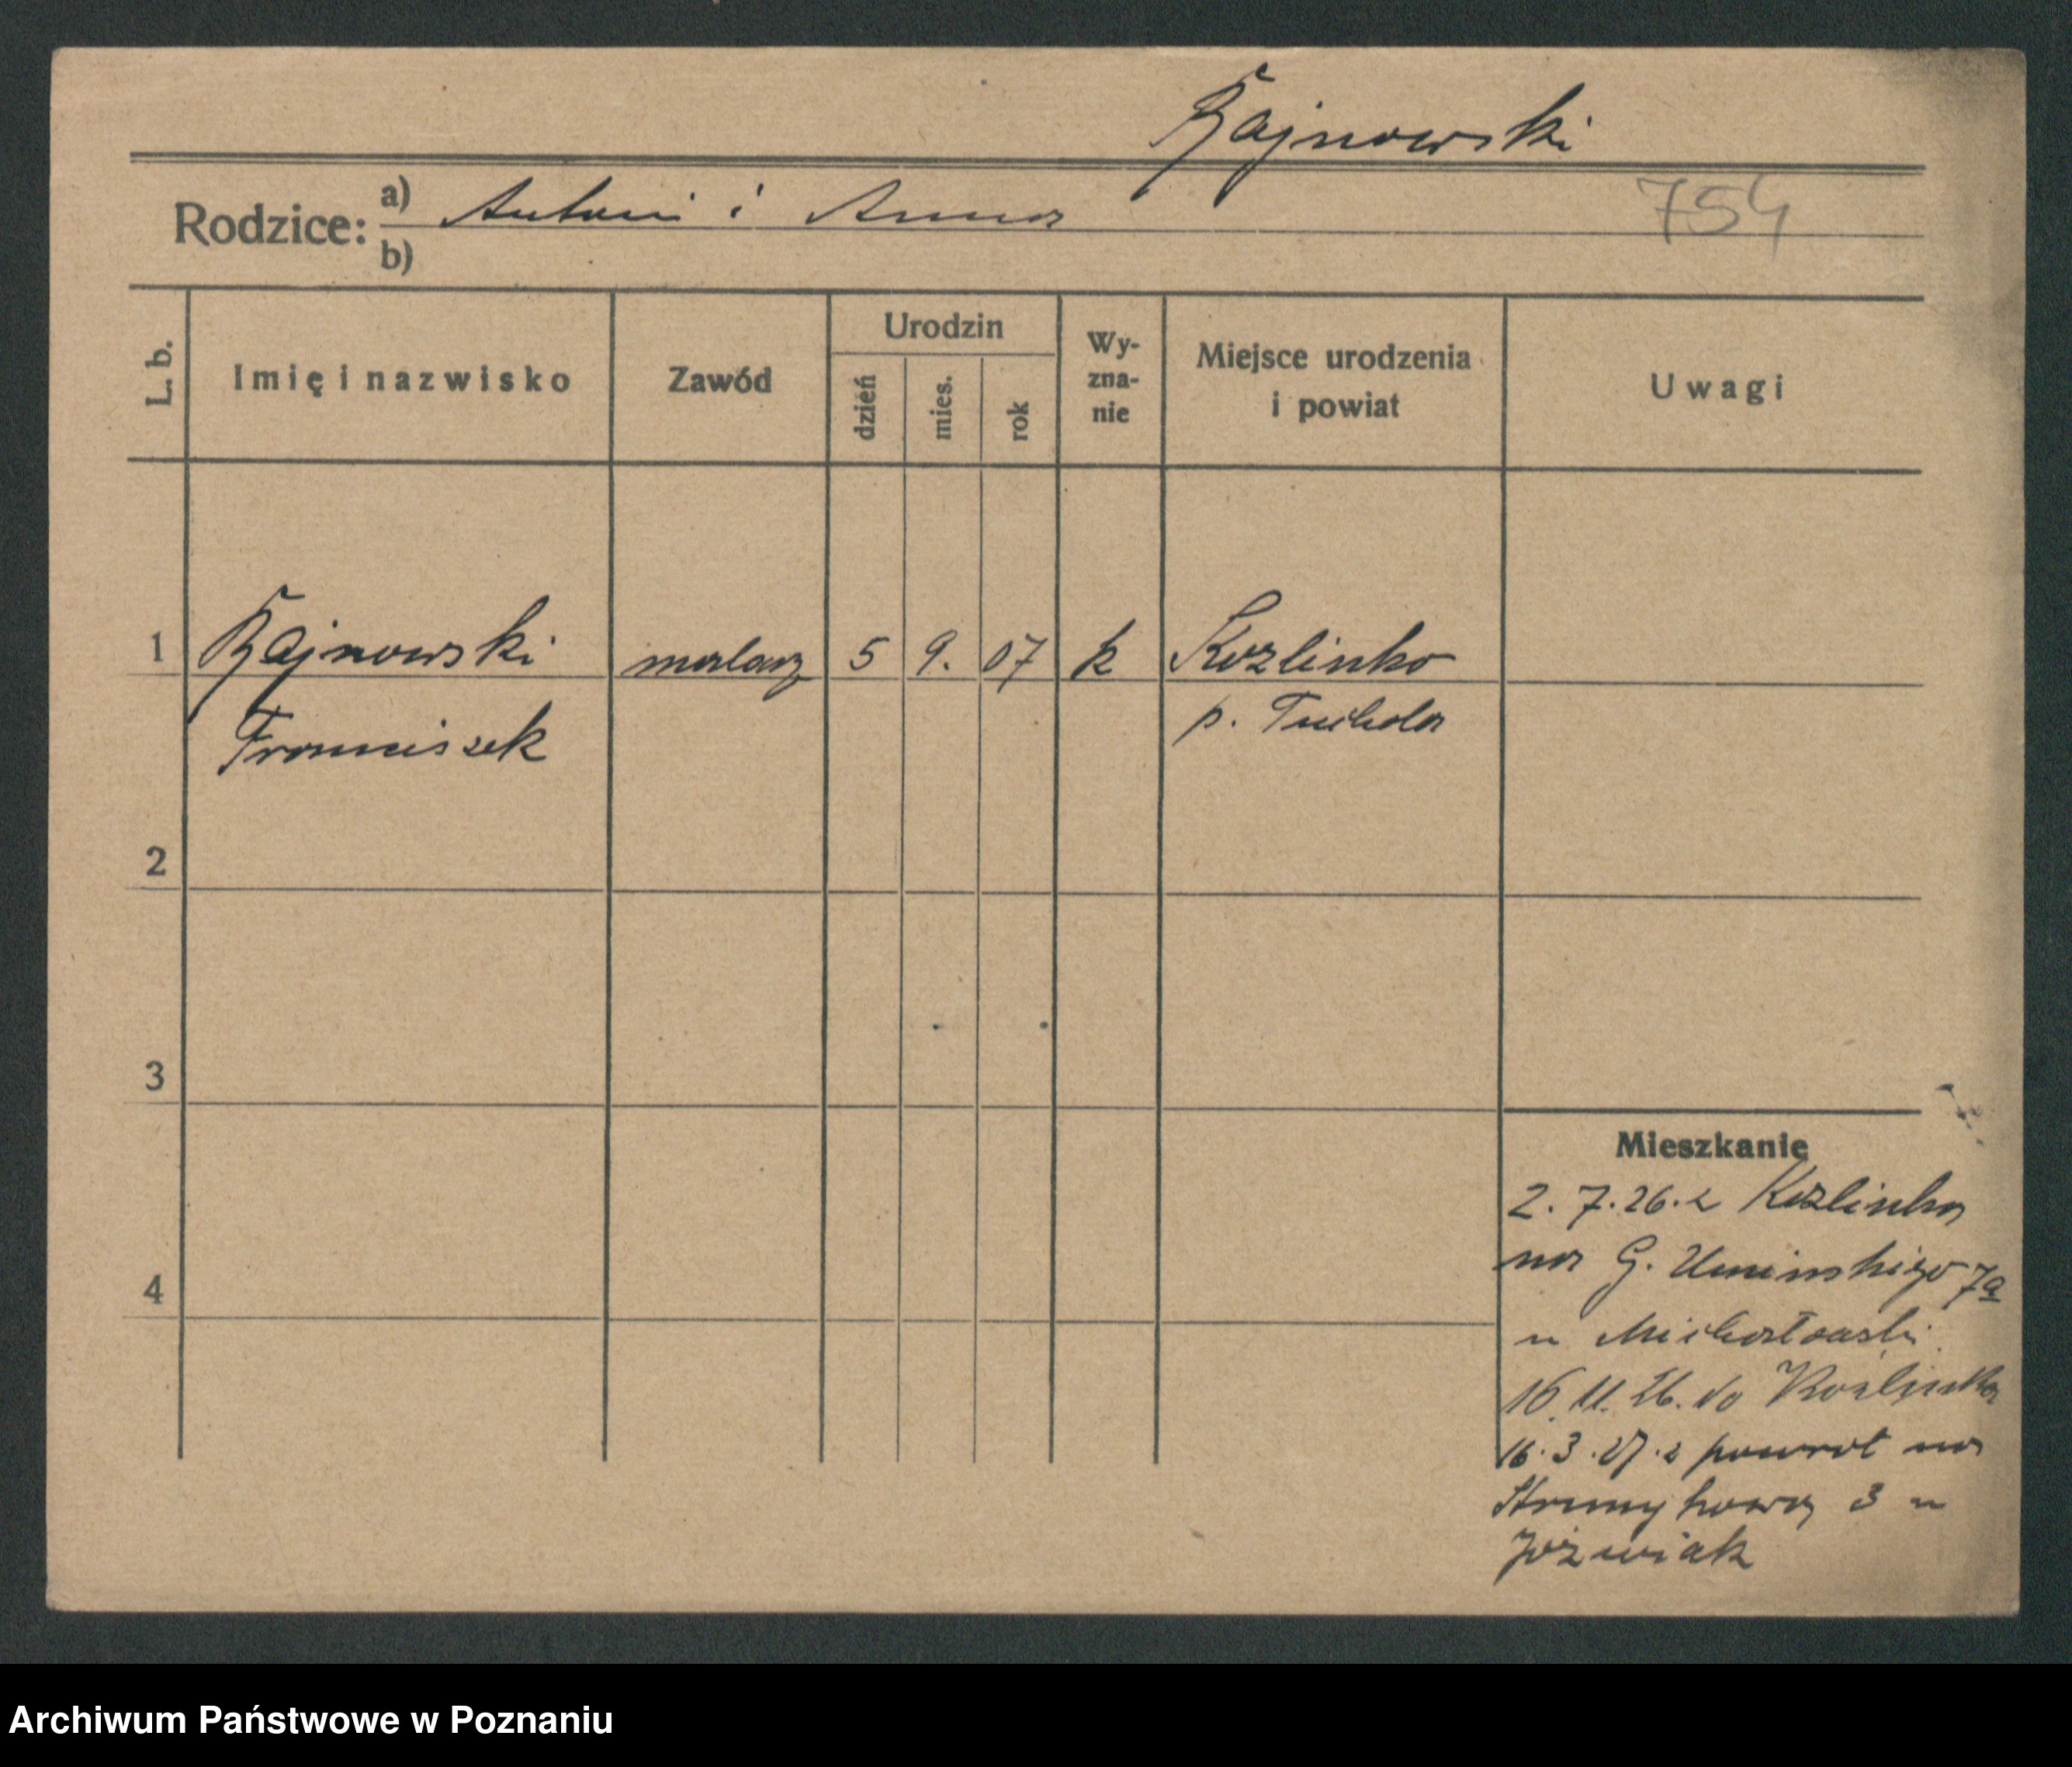 Bajnowski
Rodzice: a) Antoni i Anna
754
b)
L. b.
Imię i nazwisko
Zawód
Urodzin
dzień
mies.
rok
Wy-
zna-
nie
Miejsce urodzenia
i powiat
Uwagi
1 Bajnowski malarz 5 9. 07 k Kozlinko
Franciszek p. Tuchola
2
3
4
Mieszkanie
2. 7. 26. z Kozlinka
na G. Uminskiego 7a
u Michałowski
16. 11. 26. do Kozlinka
16. 3. 27. z powrot na
Strumykowa 3 u
Jóżwiak
Archiwum Państwowe w Poznaniu